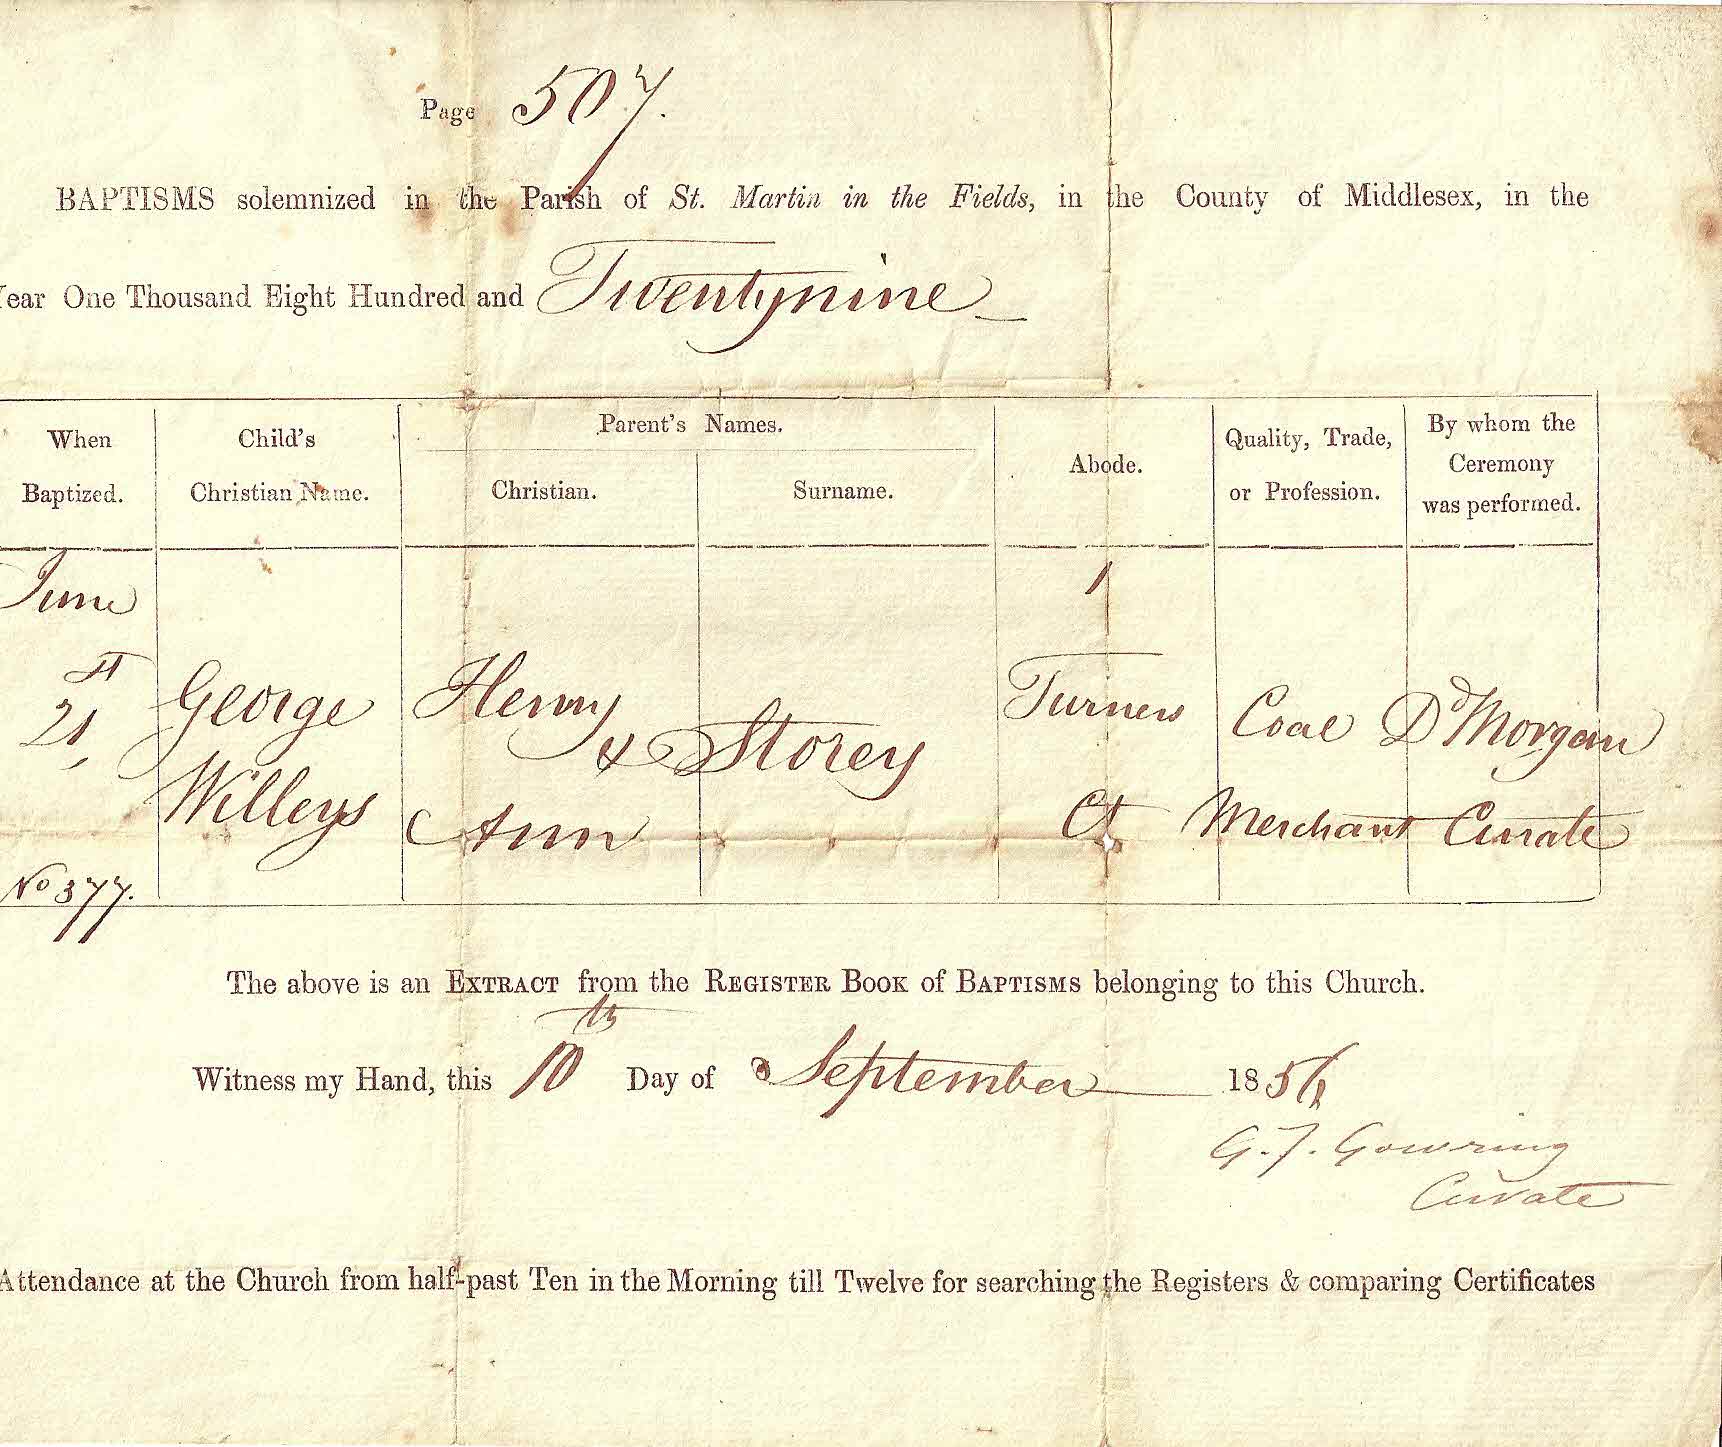 Page 507.
BAPTISMS solemnized in the Parish of St. Martin in the Fields, in the County of Middlesex, in the
Year One Thousand Eight Hundred and Twentynine
When Baptized.
Child's Christian Name.
Parent's Names.
Christian.
Surname.
Abode.
Quality, Trade, or Profession.
By whom the Ceremony was performed.
June
21st
No 377.
George
Willeys
Henry
&
Ann
Storey
1
Turners
Ct
Coal
Merchant
Dd Morgan
Curate
The above is an EXTRACT from the REGISTER BOOK of BAPTISMS belonging to this Church.
Witness my Hand, this 10th Day of September 1856
G. F. Gowring
Curate
Attendance at the Church from half-past Ten in the Morning till Twelve for searching the Registers & comparing Certificates